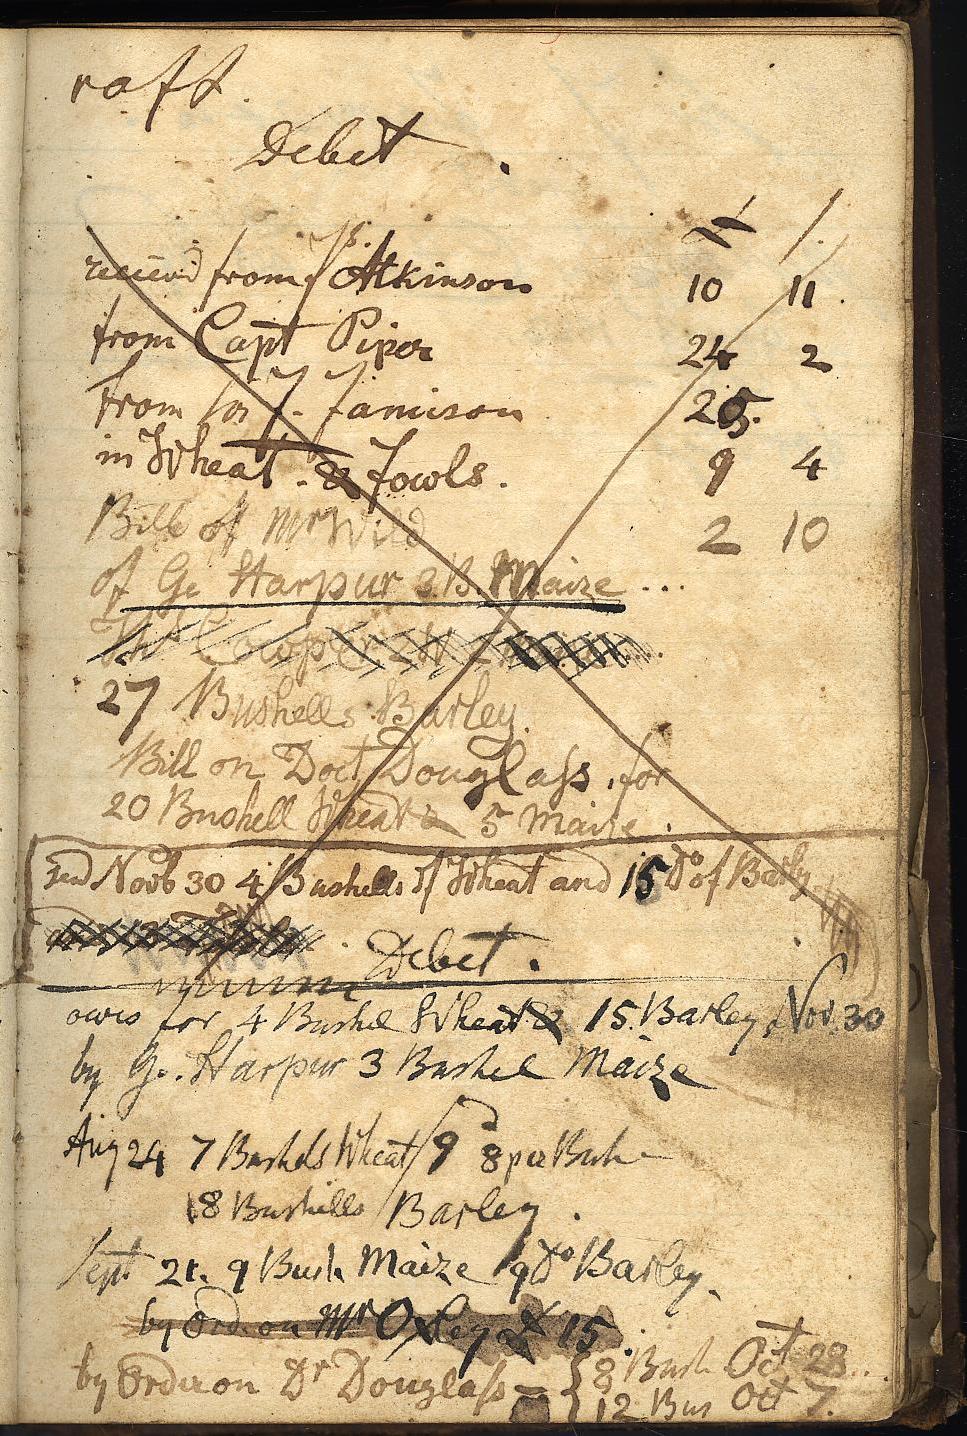 raft.
Debet.
£ /.
received from Js. Atkinson 10 11.
from Capt Piper 24 2
from J. Jamison 25.
in Wheat. & fowls. 9 4
Bill of Mr Wild 2 10
of Ge Harpur 3. B. Maize ...
Cowper
27 Bushells Barley.
Bill on Doct Douglass, for
20 Bushell Wheat & 5 Maize.
Novb 30 4 Bushells of Wheat and 15 Do of Barley
Debet.
owes for 4 Bushel Wheat & 15. Barley, Nov. 30
by Ge. Harpur 3 Bushel Maize
Aug 24 7 Bushels Wheat / 9 8 per Bush
18 Bushills Barley.
Sept 21. 9 Bush Maize 9 Do Barley.
by Ord. on Mr Oxley £ 15
by Order on Dr Douglass = { 8 Bush Oct 28...
12 Bus Oct 7.